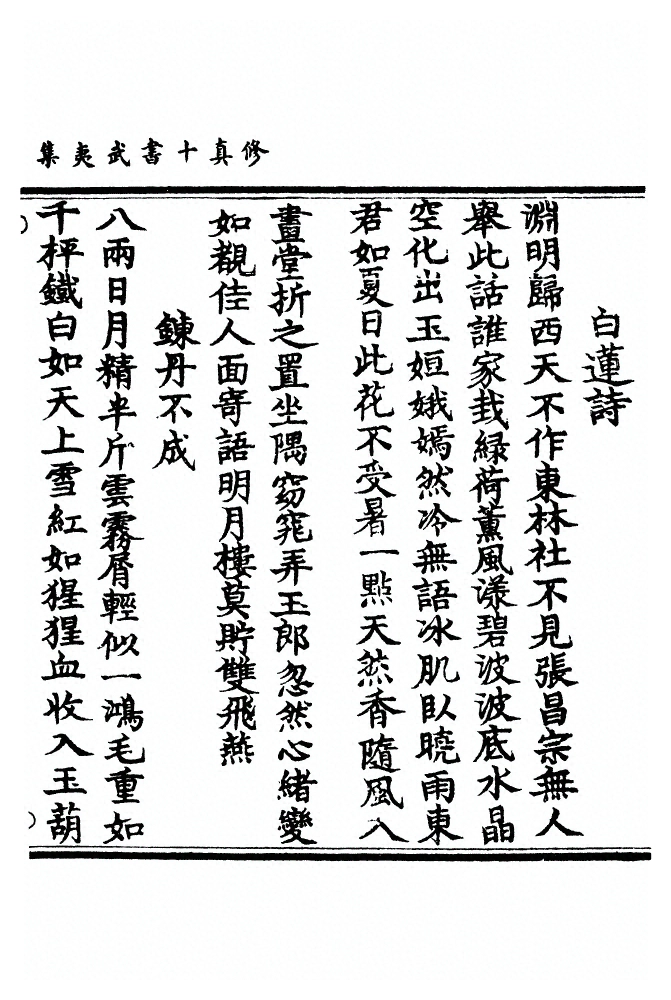 修真十書武夷集
白蓮詩
淵明歸西天不作東林社不見張昌宗無人
舉此話誰家栽綠荷薰風漾碧波波底水晶
空化出玉姮娥嫣然冷無語冰肌臥曉雨東
君如夏日此花不受暑一點天然香隨風入
晝堂折之置坐隅窈窕弄玉郎忽然心緒變
如觀佳人面寄語明月樓莫貯雙飛燕
鍊丹不成
八兩日月精半斤雲霧屑輕似一鴻毛重如
千枰鐵白如天上雪紅如猩猩血收入玉葫